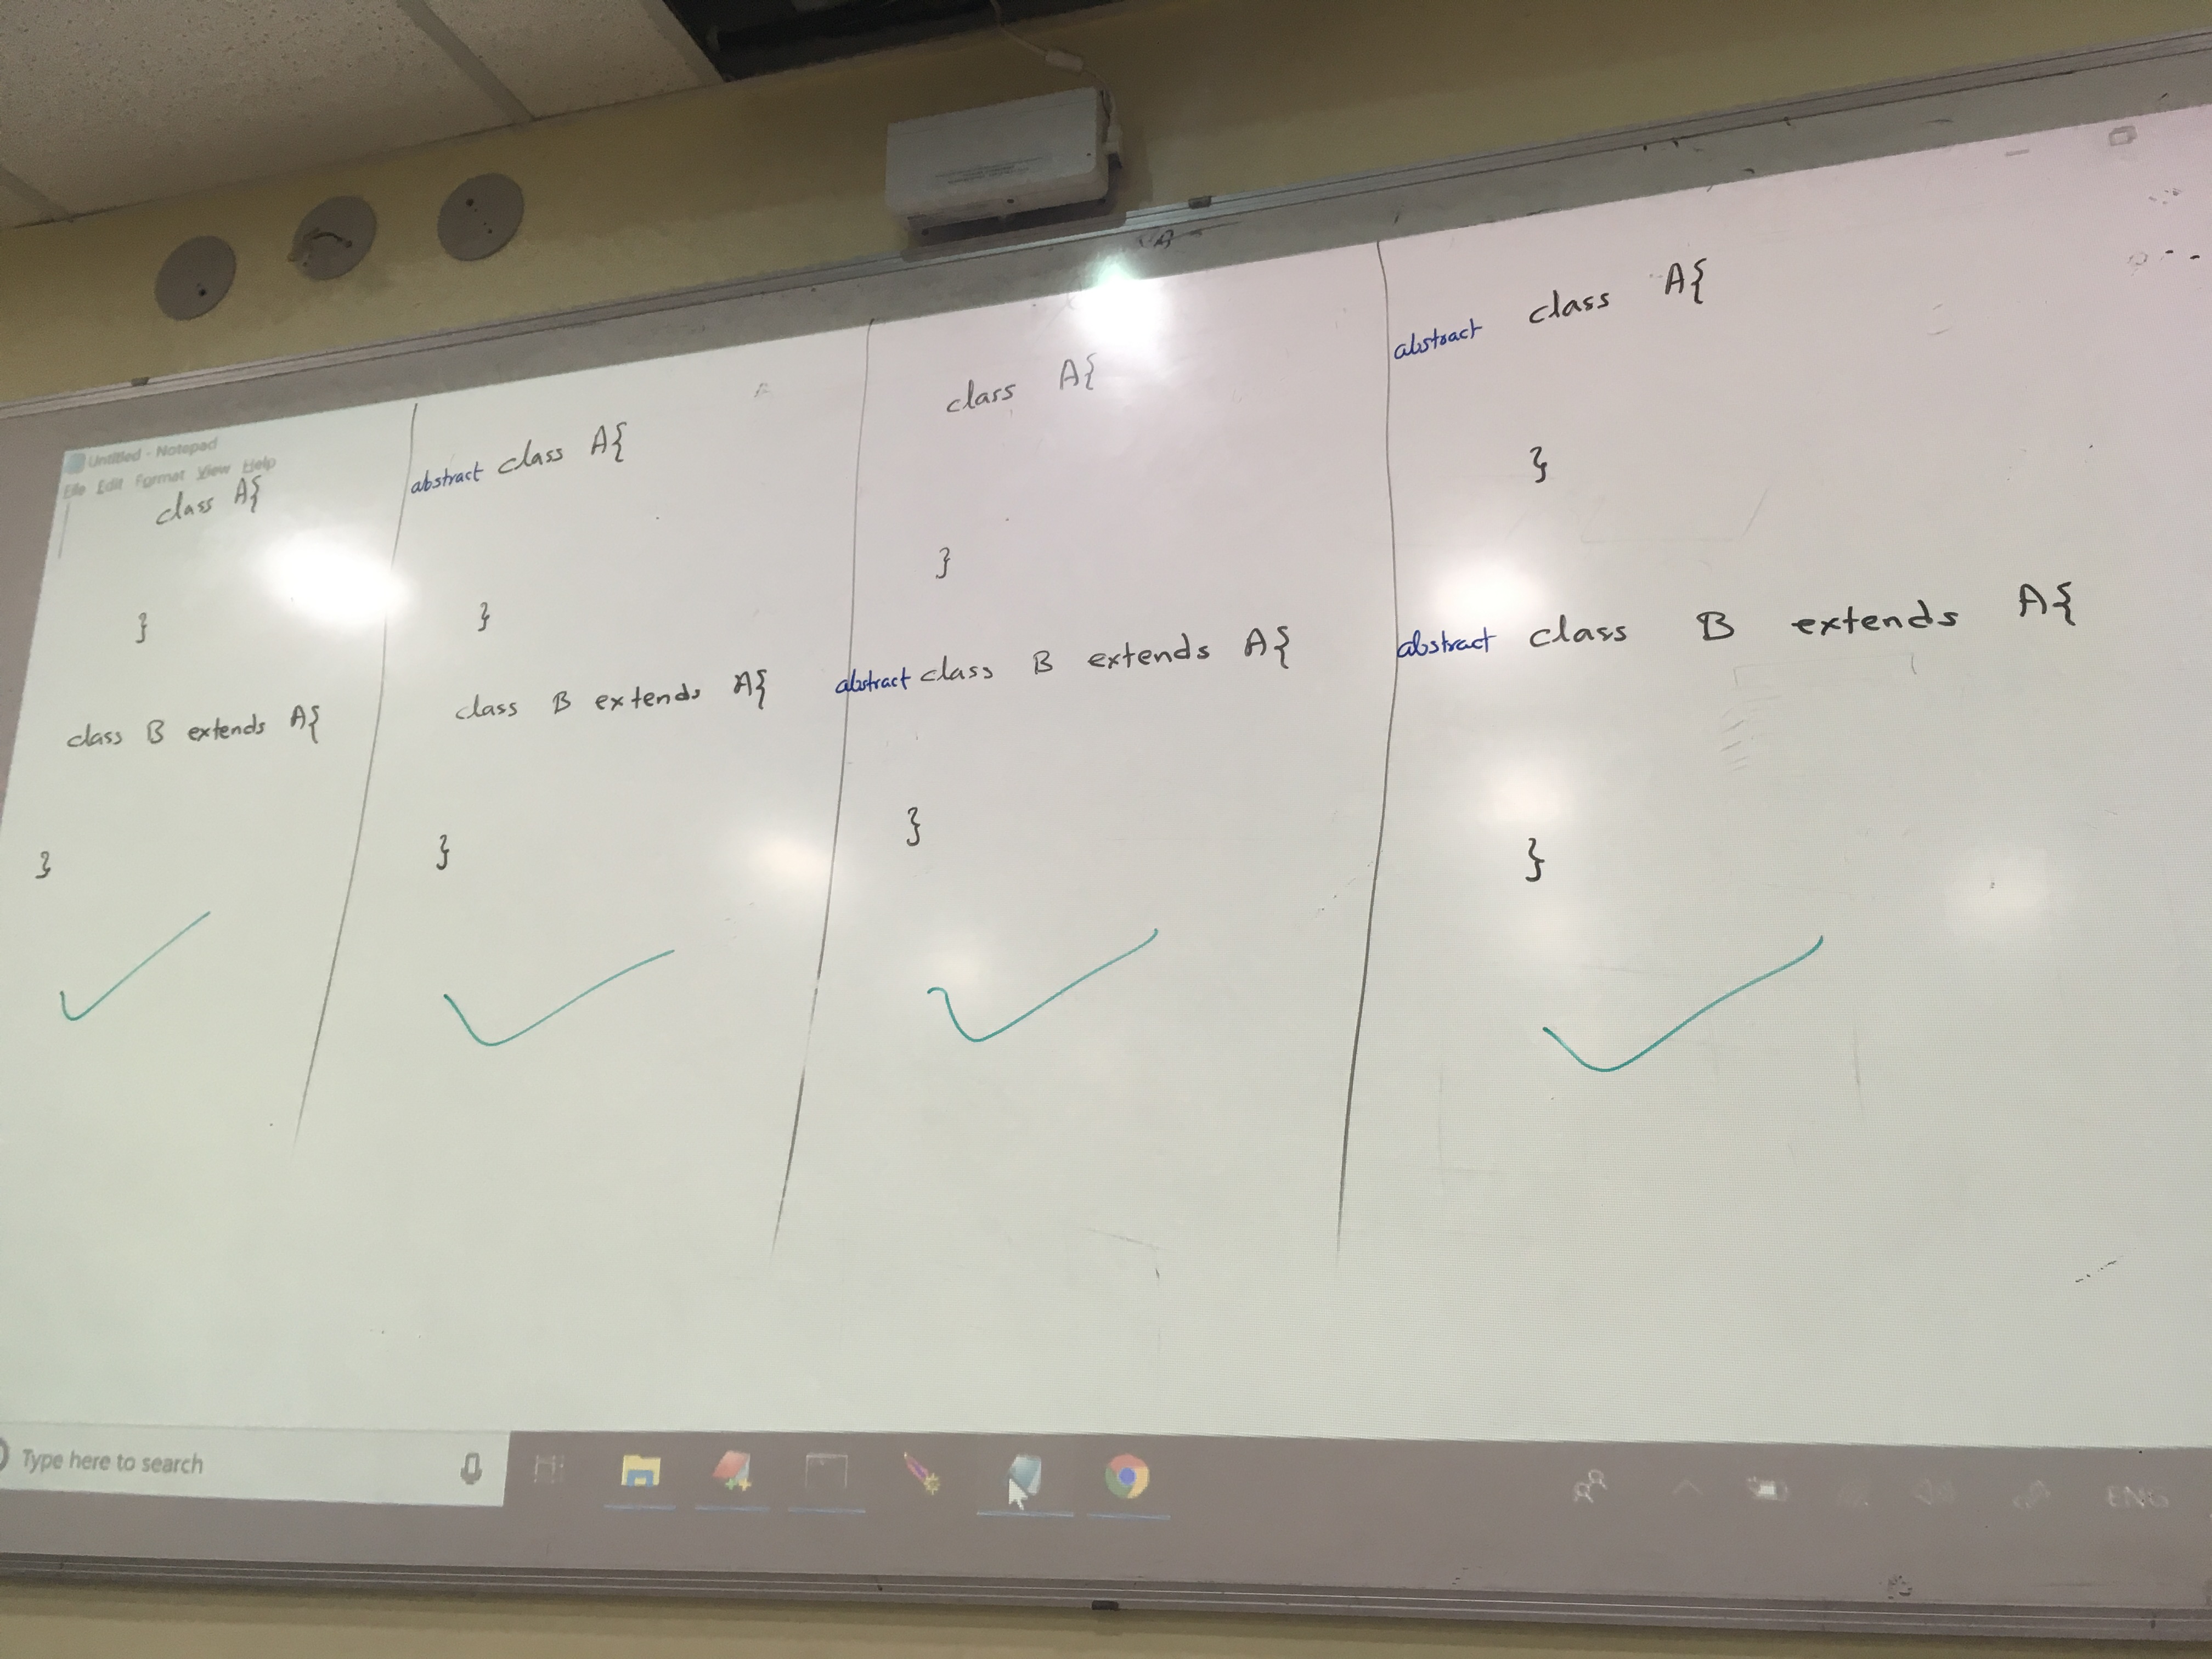 Untitled - Notepad
File Edit Format View Help
class A{
}
class B extends A{
}
abstract class A{
}
class B extends A{
}
class A{
}
abstract class B extends A{
}
abstract class A{
}
abstract class B extends A{
}
Type here to search
ENG